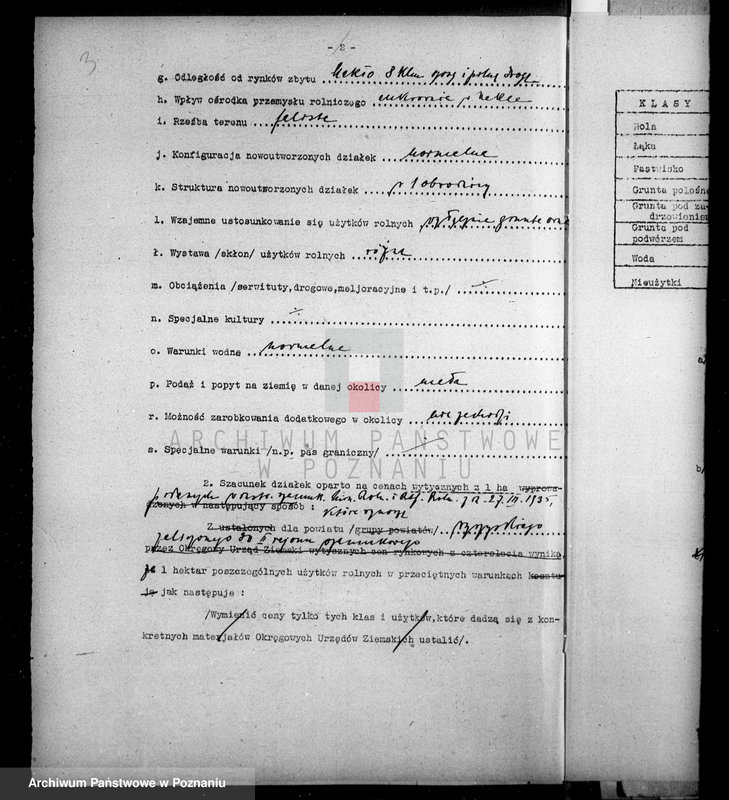 3
- 2 -
g. Odległość od rynków zbytu Nekło 8 klm szosą i polną drogą
h. Wpływ ośrodka przemysłu rolniczego cukrownia w Nekle
i. Rzeźba terenu falista
j. Konfiguracja nowoutworzonych działek normalna
k. Struktura nowoutworzonych działek w 1 obrębie
l. Wzajemne ustosunkowanie się użytków rolnych wyłącznie grunta orne
ł. Wystawa /skłon/ użytków rolnych różna
m. Obciążenia /serwituty,drogowe,meljoracyjne i t.p./ -/-
n. Specjalne kultury -/-
o. Warunki wodne normalne
p. Podaż i popyt na ziemię w danej okolicy mała
r. Możność zarobkowania dodatkowego w okolicy nie zachodzi
s. Specjalne warunki /n.p. pas graniczny/ -/-
2. Szacunek działek oparto na cenach wytycznych z 1 ha wyprowa-
podanych w Min. Roln. i Ref. Roln. z d. 27.III.1935,
dzonych w następujący sposób : które
Z ustalonych dla powiatu /grupy powiatów/
do I rejonu szacunkowego
przez Okręgowy Urząd Ziemski wytycznych cen rynkowych z czterolecia wynika,
że 1 hektar poszczególnych użytków rolnych w przeciętnych warunkach kosztu-
je jak następuje :
/Wymienić ceny tylko tych klas i użytków,które dadzą się z kon-
kretnych materjałów Okręgowych Urzędów Ziemskich ustalić/.
KLASY
Rola
Łąka
Pastwisko
Grunta połośne
Grunta pod za-
drzewieniem
Grunta pod
podwórzem
Woda
Nieużytki
a/
b/
ARCHIWUM PAŃSTWOWE
W POZNANIU
Archiwum Państwowe w Poznaniu